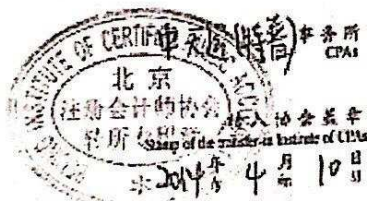 INSTITUTE OF CERTIF
(特普)事务所
CPAs
北京
注册会计师协会
转所专用章
转入协会盖章
Stamp of the transfer-in Institute of CPAs
2014年4月10日